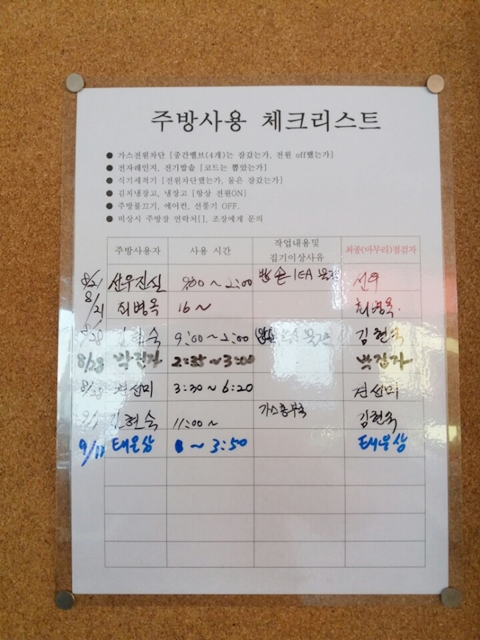 주방사용 체크리스트
● 가스전원차단 [중간밸브(4개)는 잠갔는가, 전원 off했는가]
● 전자레인지, 전기밥솥 [코드는 뽑았는가]
● 식기세척기 [전원차단했는가, 물은 잠갔는가]
● 김치냉장고, 냉장고 [항상 전원ON]
● 주방불끄기, 에어컨, 선풍기 OFF.
● 비상시 주방장 연락처[], 조장에게 문의
주방사용자 사용 시간 작업내용및 집기이상사유 최종(마무리)점검자
8/21 선우진실 9:00~2:00
8/21 최병옥 16~ 최병옥
8/28 9:00~2:00 김현숙
8/28 박진자 2:35~3:00 박진자
8/28 3:30~6:20
9/ 김현숙 11:00~ 김현숙
9/11 태운상 ~3:50 태운상